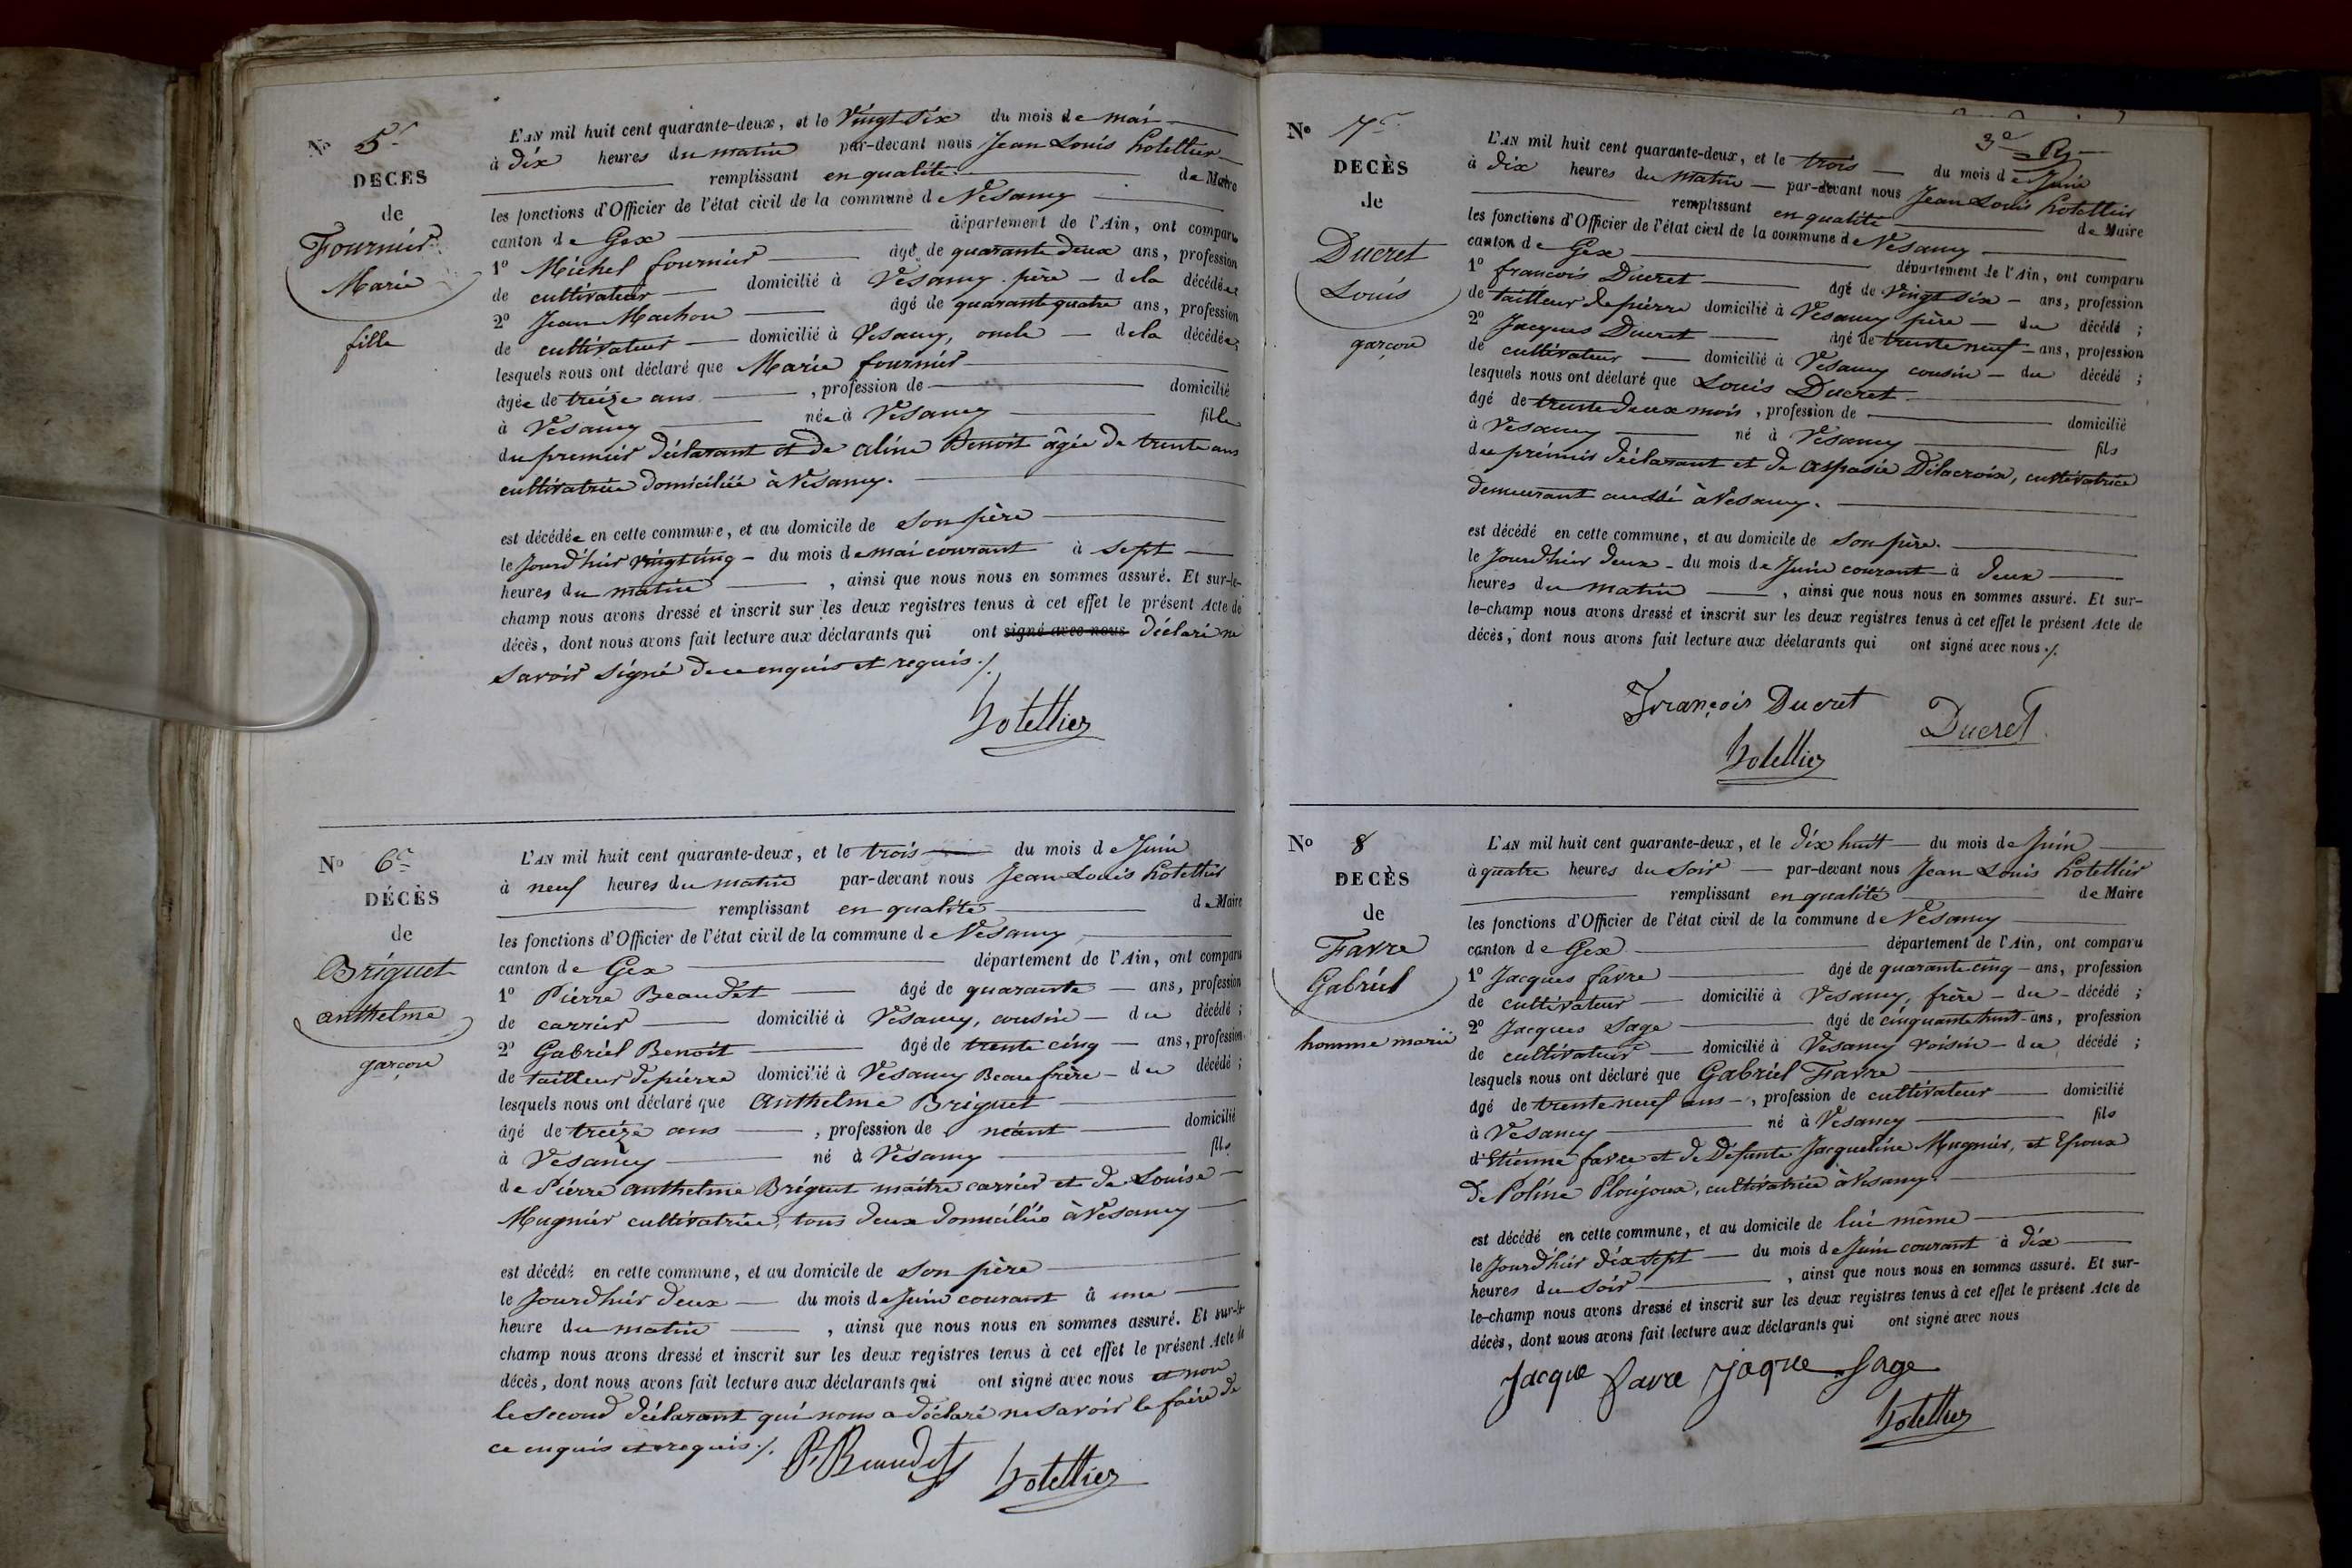 N° 5e
DECES
de
Fournier
Marie
fille
L'AN mil huit cent quarante-deux, et le vingt six du mois de mai
à dix heures du matin par-devant nous Jean Louis hotellier
remplissant en qualité de Maire
les fonctions d'Officier de l'état civil de la commune de Vesancy
canton de Gex département de l'Ain, ont comparu
1° Michel fournier âgé de quarante deux ans, profession
de cultivateur domicilié à Vesancy père de la décédée;
2° Jean Machon âgé de quarante quatre ans, profession
de cultivateur domicilié à Vesancy, oncle de la décédée;
lesquels nous ont déclaré que Marie fournier
âgée de treize ans, profession de domicilié
à Vesancy née à Vesancy fille
du premier déclarant et de aline Benoit âgée de trente ans
cultivatrice domiciliée à Vesancy.
est décédée en cette commune, et au domicile de son père
le jourd'hier vingt cinq du mois de mai courant à sept
heures du matin, ainsi que nous nous en sommes assuré. Et sur-le-
champ nous avons dressé et inscrit sur les deux registres tenus à cet effet le présent Acte de
décès, dont nous avons fait lecture aux déclarants qui ont signé avec nous déclaré ne
savoir signé de ce enquis et requis ./.
hotellier
N° 6e
DÉCÈS
de
Briguet
anthelme
garçon
L'AN mil huit cent quarante-deux, et le trois du mois de Juin
à neuf heures du matin par-devant nous Jean Louis hotellier
remplissant en qualité de Maire
les fonctions d'Officier de l'état civil de la commune de Vesancy
canton de Gex département de l'Ain, ont comparu
1° Pierre Beaudet âgé de quarante ans, profession
de carrier domicilié à Vesancy, cousin du décédé;
2° Gabriel Benoit âgé de trente cinq ans, profession
de tailleur de pierre domicilié à Vesancy Beau frère du décédé;
lesquels nous ont déclaré que Anthelme Briguet
âgé de treize ans, profession de néant domicilié
à Vesancy né à Vesancy fils
de Pierre anthelme Briguet maitre carrier et de Louise
Mugnier cultivatrice, tous deux domiciliés à Vesancy
est décédé en cette commune, et au domicile de son père
le jourd'hier deux du mois de Juin courant à une
heure du matin, ainsi que nous nous en sommes assuré. Et sur-le-
champ nous avons dressé et inscrit sur les deux registres tenus à cet effet le présent Acte de
décès, dont nous avons fait lecture aux déclarants qui ont signé avec nous et non
le second déclarant qui nous a déclaré ne savoir le faire de
ce enquis et requis ./.
P. Beaudet hotellier
3e
N° 7e
DECÈS
de
Ducret
Louis
garçon
L'AN mil huit cent quarante-deux, et le trois du mois de Juin
à dix heures du matin par-devant nous Jean Louis hotellier
remplissant en qualité de Maire
les fonctions d'Officier de l'état civil de la commune de Vesancy
canton de Gex département de l'Ain, ont comparu
1° francois Ducret âgé de vingt six ans, profession
de tailleur de pierre domicilié à Vesancy père du décédé;
2° Jacques Ducret âgé de trente neuf ans, profession
de cultivateur domicilié à Vesancy cousin du décédé;
lesquels nous ont déclaré que Louis Ducret
âgé de trente deux mois, profession de domicilié
à Vesancy né à Vesancy fils
du premier déclarant et de aspasie Délacroix, cultivatrice
demeurant aussi à Vesancy.
est décédé en cette commune, et au domicile de son père.
le jourd'hier deux du mois de Juin courant à deux
heures du matin, ainsi que nous nous en sommes assuré. Et sur-
le-champ nous avons dressé et inscrit sur les deux registres tenus à cet effet le présent Acte de
décès, dont nous avons fait lecture aux déclarants qui ont signé avec nous ./.
François Ducret Ducret
hotellier
N° 8
DECÈS
de
Favre
Gabriel
homme marié
L'AN mil huit cent quarante-deux, et le dix huit du mois de Juin
à quatre heures du soir par-devant nous Jean Louis hotellier
remplissant en qualité de Maire
les fonctions d'Officier de l'état civil de la commune de Vesancy
canton de Gex département de l'Ain, ont comparu
1° Jacques favre âgé de quarante cinq ans, profession
de cultivateur domicilié à Vesancy, frère du décédé;
2° Jacques Sage âgé de cinquante huit ans, profession
de cultivateur domicilié à Vesancy voisin du décédé;
lesquels nous ont déclaré que Gabriel Favre
âgé de trente neuf ans, profession de cultivateur domicilié
à Vesancy né à Vesancy fils
d'Etienne favre et de Défunte Jacqueline Mugnier, et Epoux
de Poline Ploujoux, cultivatrice à Vesancy.
est décédé en cette commune, et au domicile de lui même
le jourd'hier dix sept du mois de Juin courant à dix
heures du soir, ainsi que nous nous en sommes assuré. Et sur-
le-champ nous avons dressé et inscrit sur les deux registres tenus à cet effet le présent Acte de
décès, dont nous avons fait lecture aux déclarants qui ont signé avec nous
Jacque favre jaque Sage
hotellier